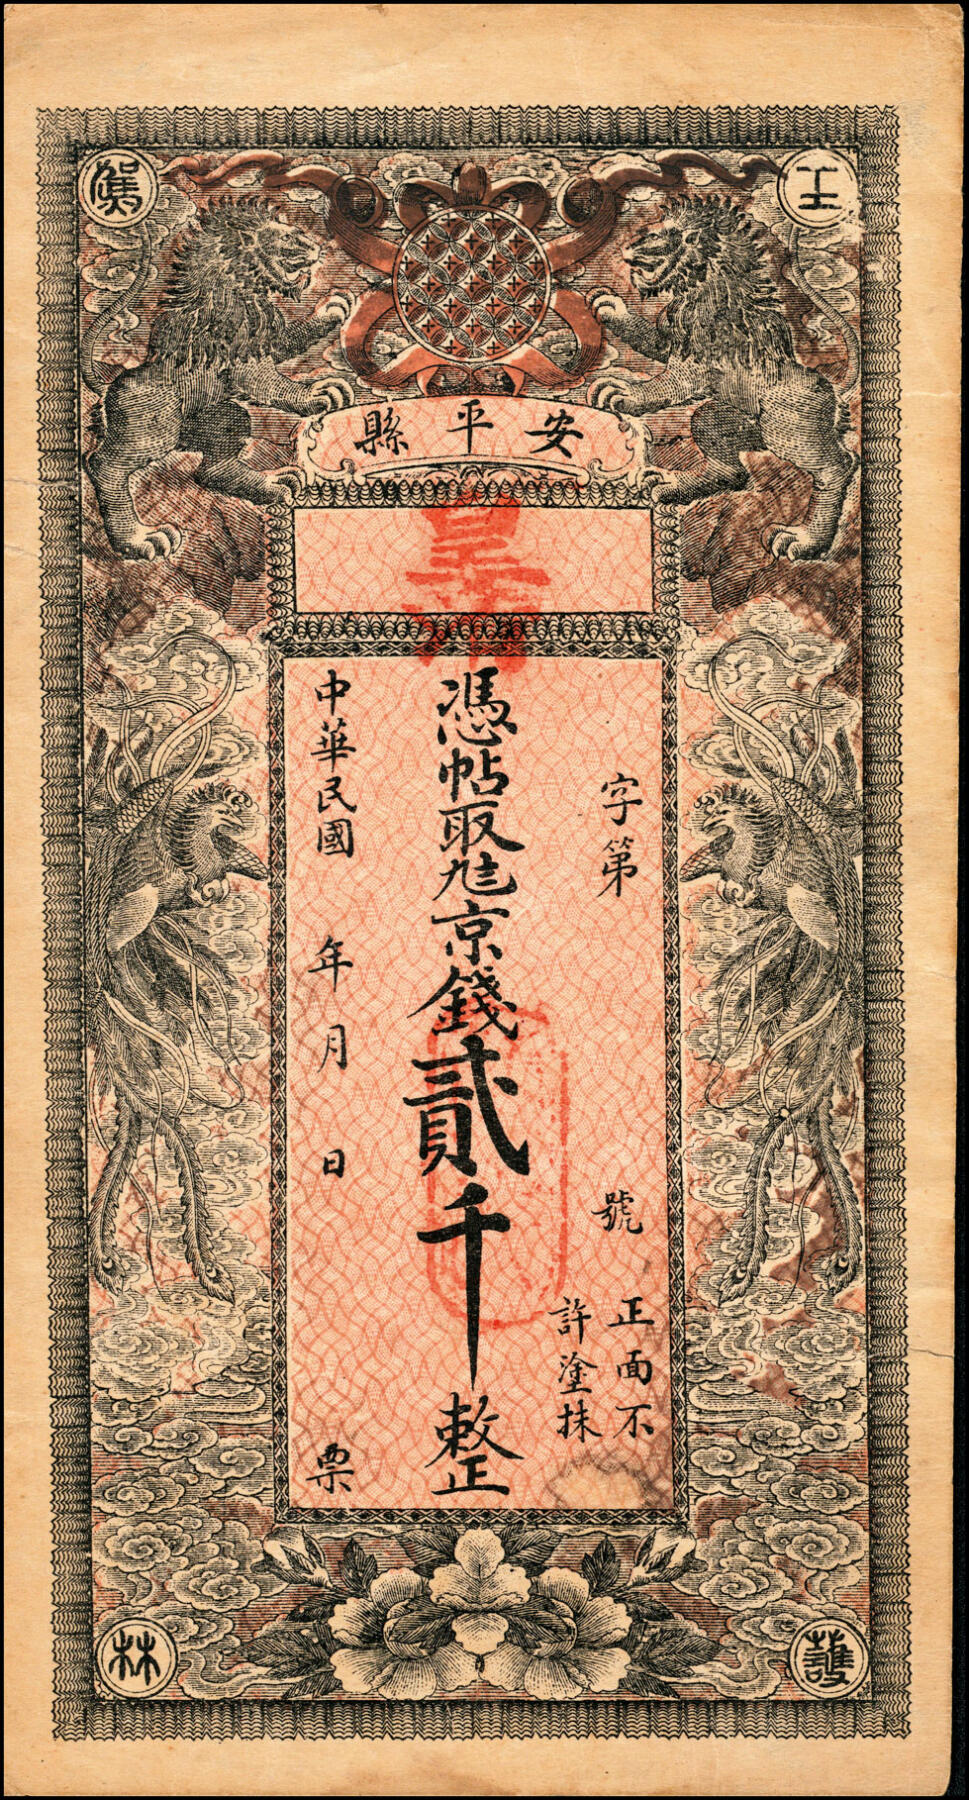 王
安平縣
字第
號
正面不
許塗抹
憑帖取兌京錢貳千整
中華民國
年
月
日
票
林